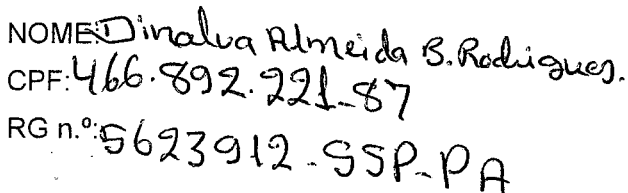 NOME: Dinalva Almeida B. Rodrigues.
CPF: 466.892.221-87
RG n.º: 5623912-SSP-PA